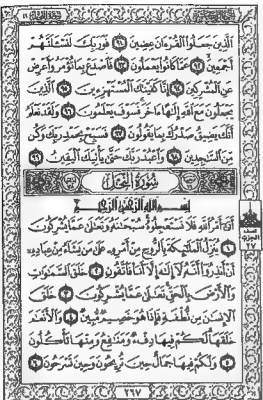 الَّذِينَ جَعَلُوا الْقُرْءَانَ عِضِينَ ٩١ فَوَرَبِّكَ لَنَسْـَٔلَنَّهُمْ
أَجْمَعِينَ ٩٢ عَمَّا كَانُوا يَعْمَلُونَ ٩٣ فَاصْدَعْ بِمَا تُؤْمَرُ وَأَعْرِضْ
عَنِ الْمُشْرِكِينَ ٩٤ إِنَّا كَفَيْنَٰكَ الْمُسْتَهْزِءِينَ ٩٥ الَّذِينَ
يَجْعَلُونَ مَعَ اللَّهِ إِلَٰهًا ءَاخَرَ فَسَوْفَ يَعْلَمُونَ ٩٦ وَلَقَدْ نَعْلَمُ
أَنَّكَ يَضِيقُ صَدْرُكَ بِمَا يَقُولُونَ ٩٧ فَسَبِّحْ بِحَمْدِ رَبِّكَ وَكُن
مِّنَ السَّٰجِدِينَ ٩٨ وَاعْبُدْ رَبَّكَ حَتَّىٰ يَأْتِيَكَ الْيَقِينُ ٩٩
سُورَةُ النَّحْلِ
بِسْمِ اللَّهِ الرَّحْمَٰنِ الرَّحِيمِ
أَتَىٰ أَمْرُ اللَّهِ فَلَا تَسْتَعْجِلُوهُ سُبْحَٰنَهُ وَتَعَٰلَىٰ عَمَّا يُشْرِكُونَ
١ يُنَزِّلُ الْمَلَٰٓئِكَةَ بِالرُّوحِ مِنْ أَمْرِهِ عَلَىٰ مَن يَشَآءُ مِنْ عِبَادِهِ
أَنْ أَنذِرُوا أَنَّهُ لَآ إِلَٰهَ إِلَّآ أَنَا۠ فَاتَّقُونِ ٢ خَلَقَ السَّمَٰوَٰتِ
وَالْأَرْضَ بِالْحَقِّ تَعَٰلَىٰ عَمَّا يُشْرِكُونَ ٣ خَلَقَ
الْإِنسَٰنَ مِن نُّطْفَةٍ فَإِذَا هُوَ خَصِيمٌ مُّبِينٌ ٤ وَالْأَنْعَٰمَ
خَلَقَهَا لَكُمْ فِيهَا دِفْءٌ وَمَنَٰفِعُ وَمِنْهَا تَأْكُلُونَ
٥ وَلَكُمْ فِيهَا جَمَالٌ حِينَ تُرِيحُونَ وَحِينَ تَسْرَحُونَ ٦
٢٦٧